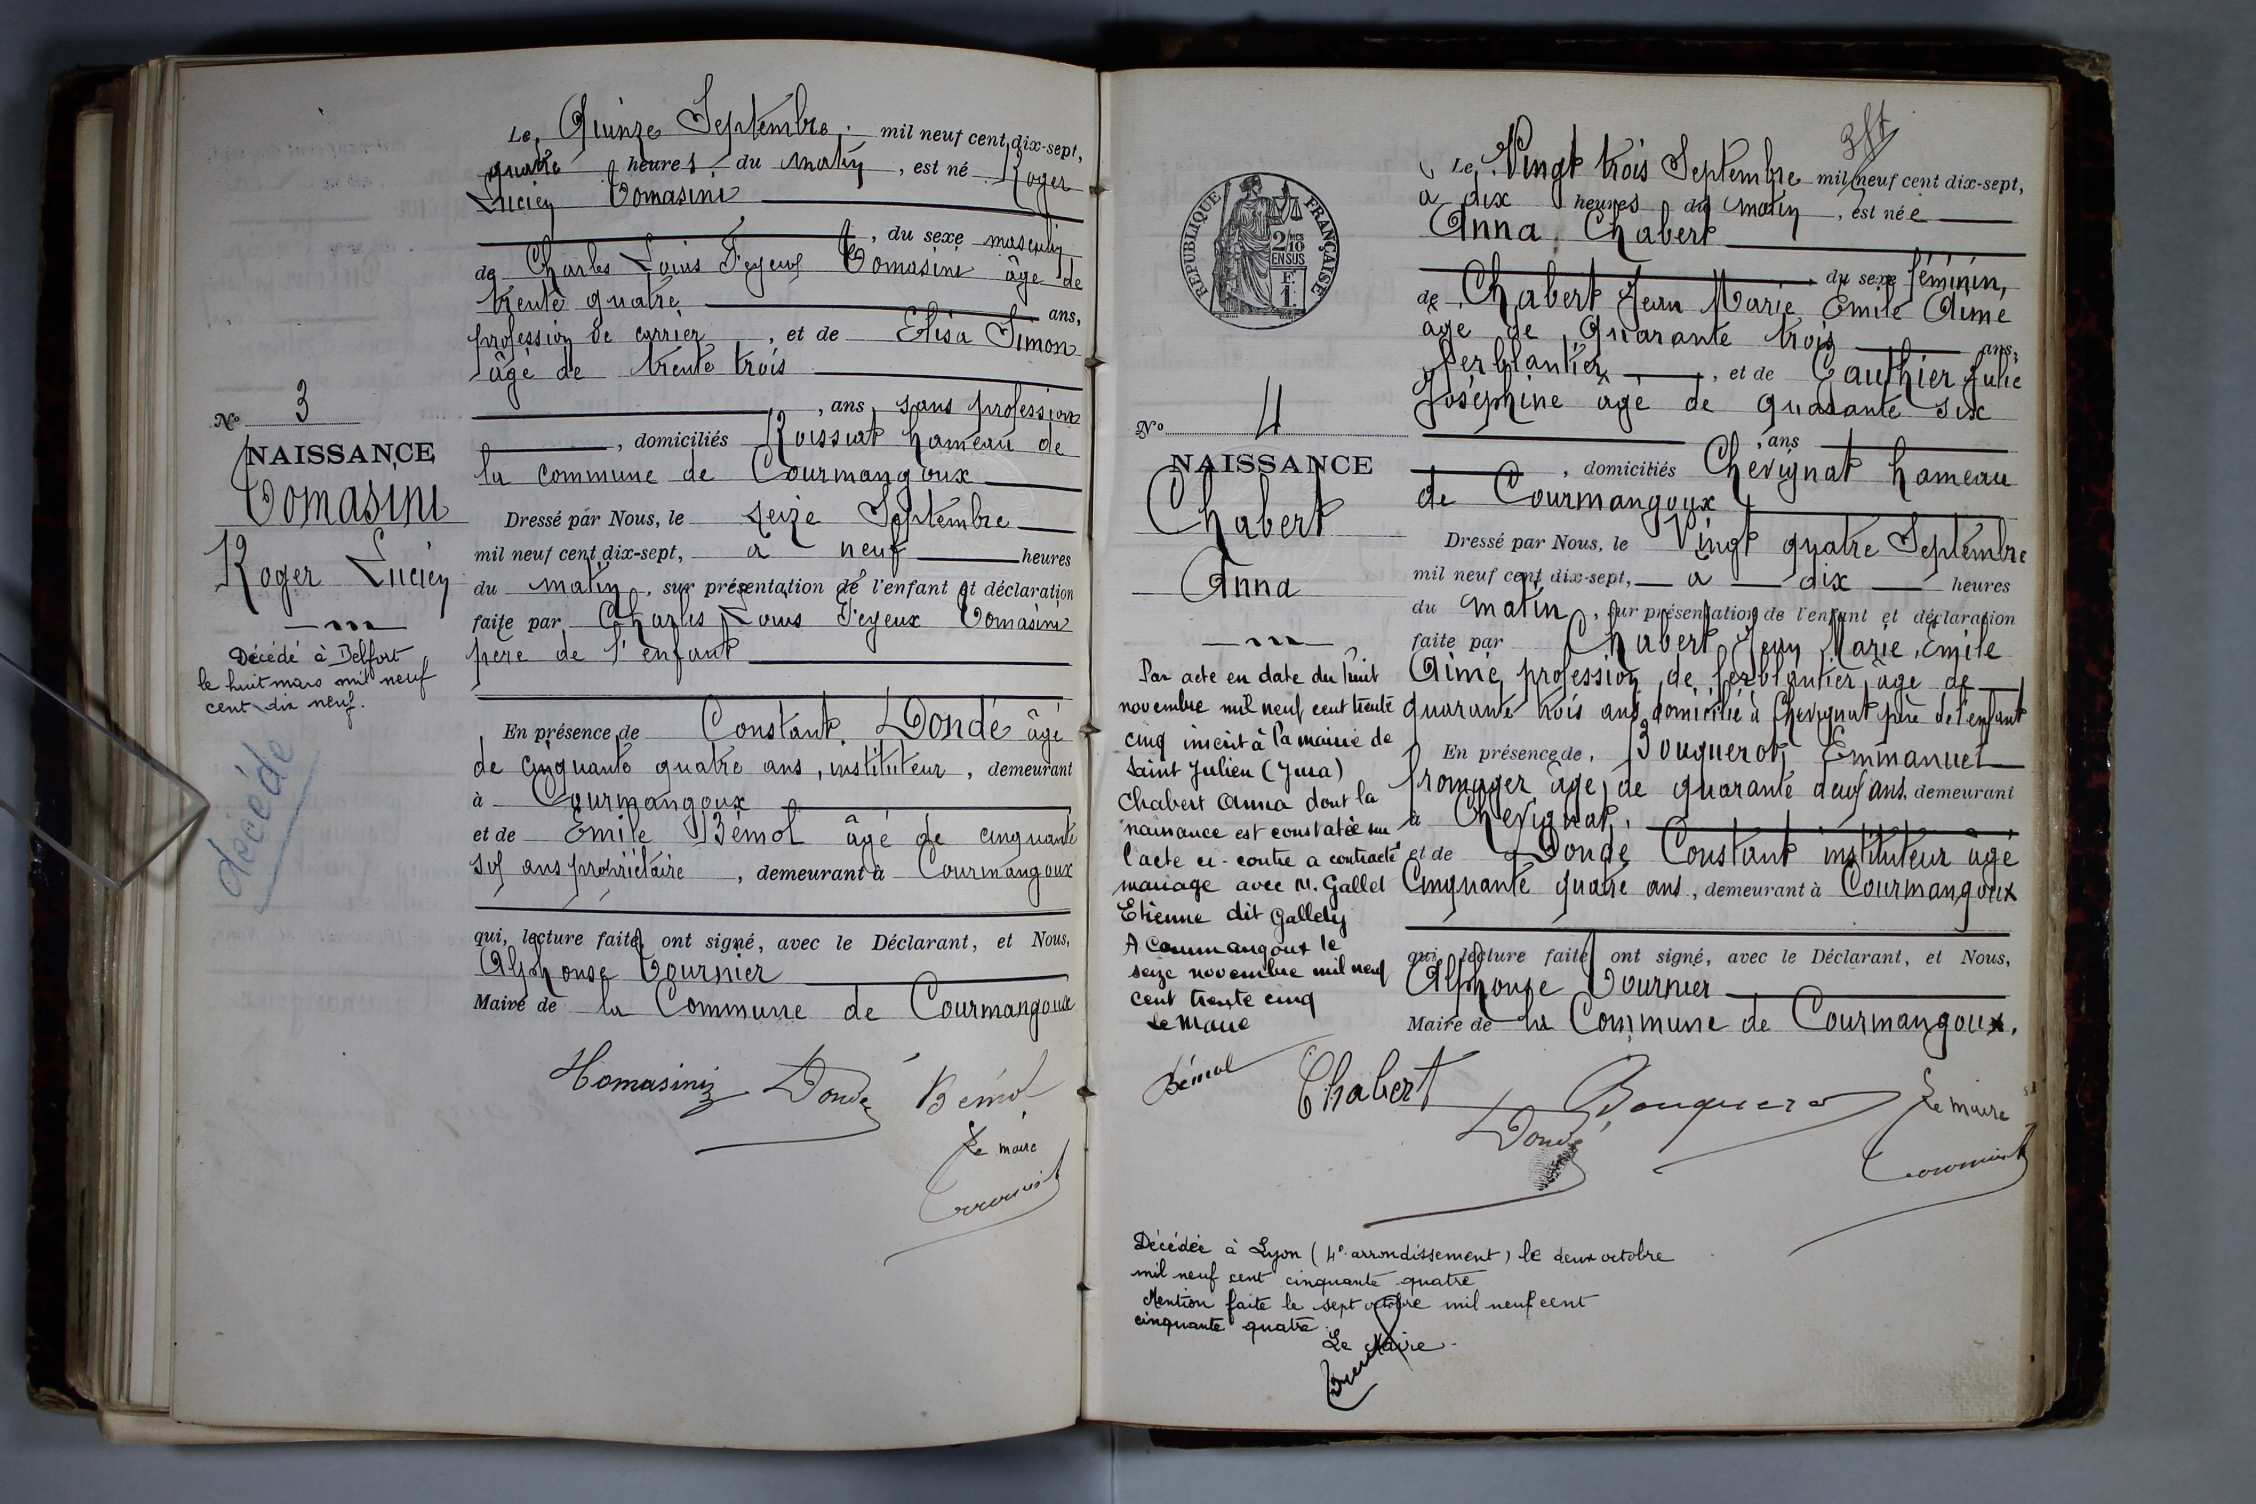 Le, Quinze Septembre, mil neuf cent dix-sept,
quatre heures du matin, est né Roger
Lucien Tomasini
, du sexe masculin
de Charles Louis Tomasini âgé de
trente quatre ans,
profession de carrier, et de Elisa Simon
âgé de trente trois
, ans, sans profession
, domiciliés Roissiat hameau de
la commune de Courmangoux
Dressé par Nous, le seize Septembre
mil neuf cent dix-sept, à neuf heures
du matin, sur présentation de l'enfant et déclaration
faite par Charles Louis Tomasini
père de l'enfant
En présence de Constant Dondé âgé
de cinquante quatre ans, instituteur, demeurant
à Courmangoux
et de Emile Bémol âgé de cinquante
ans propriétaire, demeurant à Courmangoux
qui, lecture faite, ont signé, avec le Déclarant, et Nous,
Alphonse Tournier
Maire de la Commune de Courmangoux
Dondé Bémol
Le maire
No 3
NAISSANCE
Tomasini
Roger Lucien
Décédé à Belfort
le huit mars mil neuf
cent dix neuf.
décédé
RÉPUBLIQUE FRANÇAISE
2/10 MES
EN SUS
1 F.
Le, Vingt trois Septembre mil neuf cent dix-sept,
à dix heures du matin, est née
Anna Chabert
du sexe féminin,
de Chabert Jean Marie Emile Aimé
âgé de quarante trois ans,
ferblantier, et de Gauthier Julie
Joséphine âgé de quarante six
, ans
, domiciliés Chevignat hameau
de Courmangoux
Dressé par Nous, le Vingt quatre Septembre
mil neuf cent dix-sept, à dix heures
du matin, sur présentation de l'enfant et déclaration
faite par Chabert Jean Marie Emile
Aimé, profession de ferblantier, âgé de
quarante trois ans domicilié à Chevignat père de l'enfant
En présence de, Bouquerot Emmanuel
fromager âgé de quarante deux ans, demeurant
à Chevignat,
et de Dondé Constant instituteur âgé
Cinquante quatre ans, demeurant à Courmangoux
qui, lecture faite, ont signé, avec le Déclarant, et Nous,
Alphonse Tournier
Maire de la Commune de Courmangoux.
No 4
NAISSANCE
Chabert
Anna
Par acte en date du huit
novembre mil neuf cent trente
cinq inscrit à la mairie de
Saint Julien (Jura)
Chabert Anna dont la
naissance est constatée sur
l'acte ci-contre a contracté
mariage avec M. Gallet
Etienne dit Gallety
A Courmangoux le
seize novembre mil neuf
cent trente cinq
Le Maire
Bémol
Chabert Bouquerot Le maire
Dondé
Décédée à Lyon (4e arrondissement) le deux octobre
mil neuf cent cinquante quatre
Mention faite le sept octobre mil neuf cent
cinquante quatre.
Le Maire